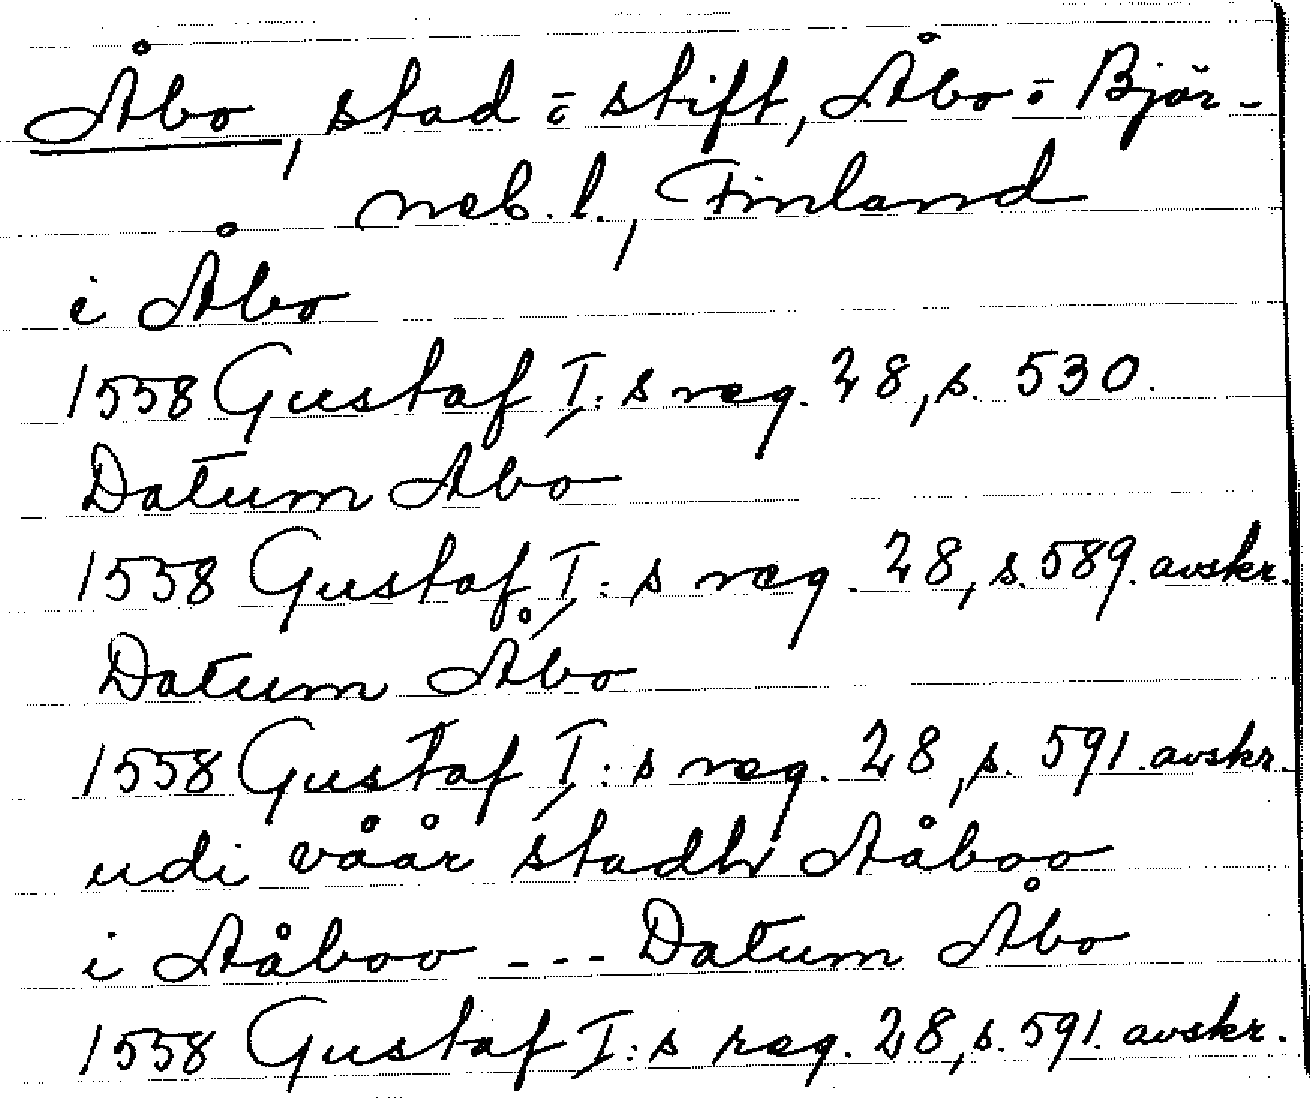 Åbo, stad o. stift, Åbo o. Björ-
neb. l., Finland
i Åbo
1558 Gustaf I:s reg. 28, s. 530.
Datum Abo
1558 Gustaf I:s reg. 28, s. 589. avskr.
Datum Åbo
1558 Gustaf I:s reg. 28, s. 591. avskr.
udi våår stadh Aåboo
i Aåboo --- Datum Åbo
1558 Gustaf I:s reg. 28, s. 591. avskr.